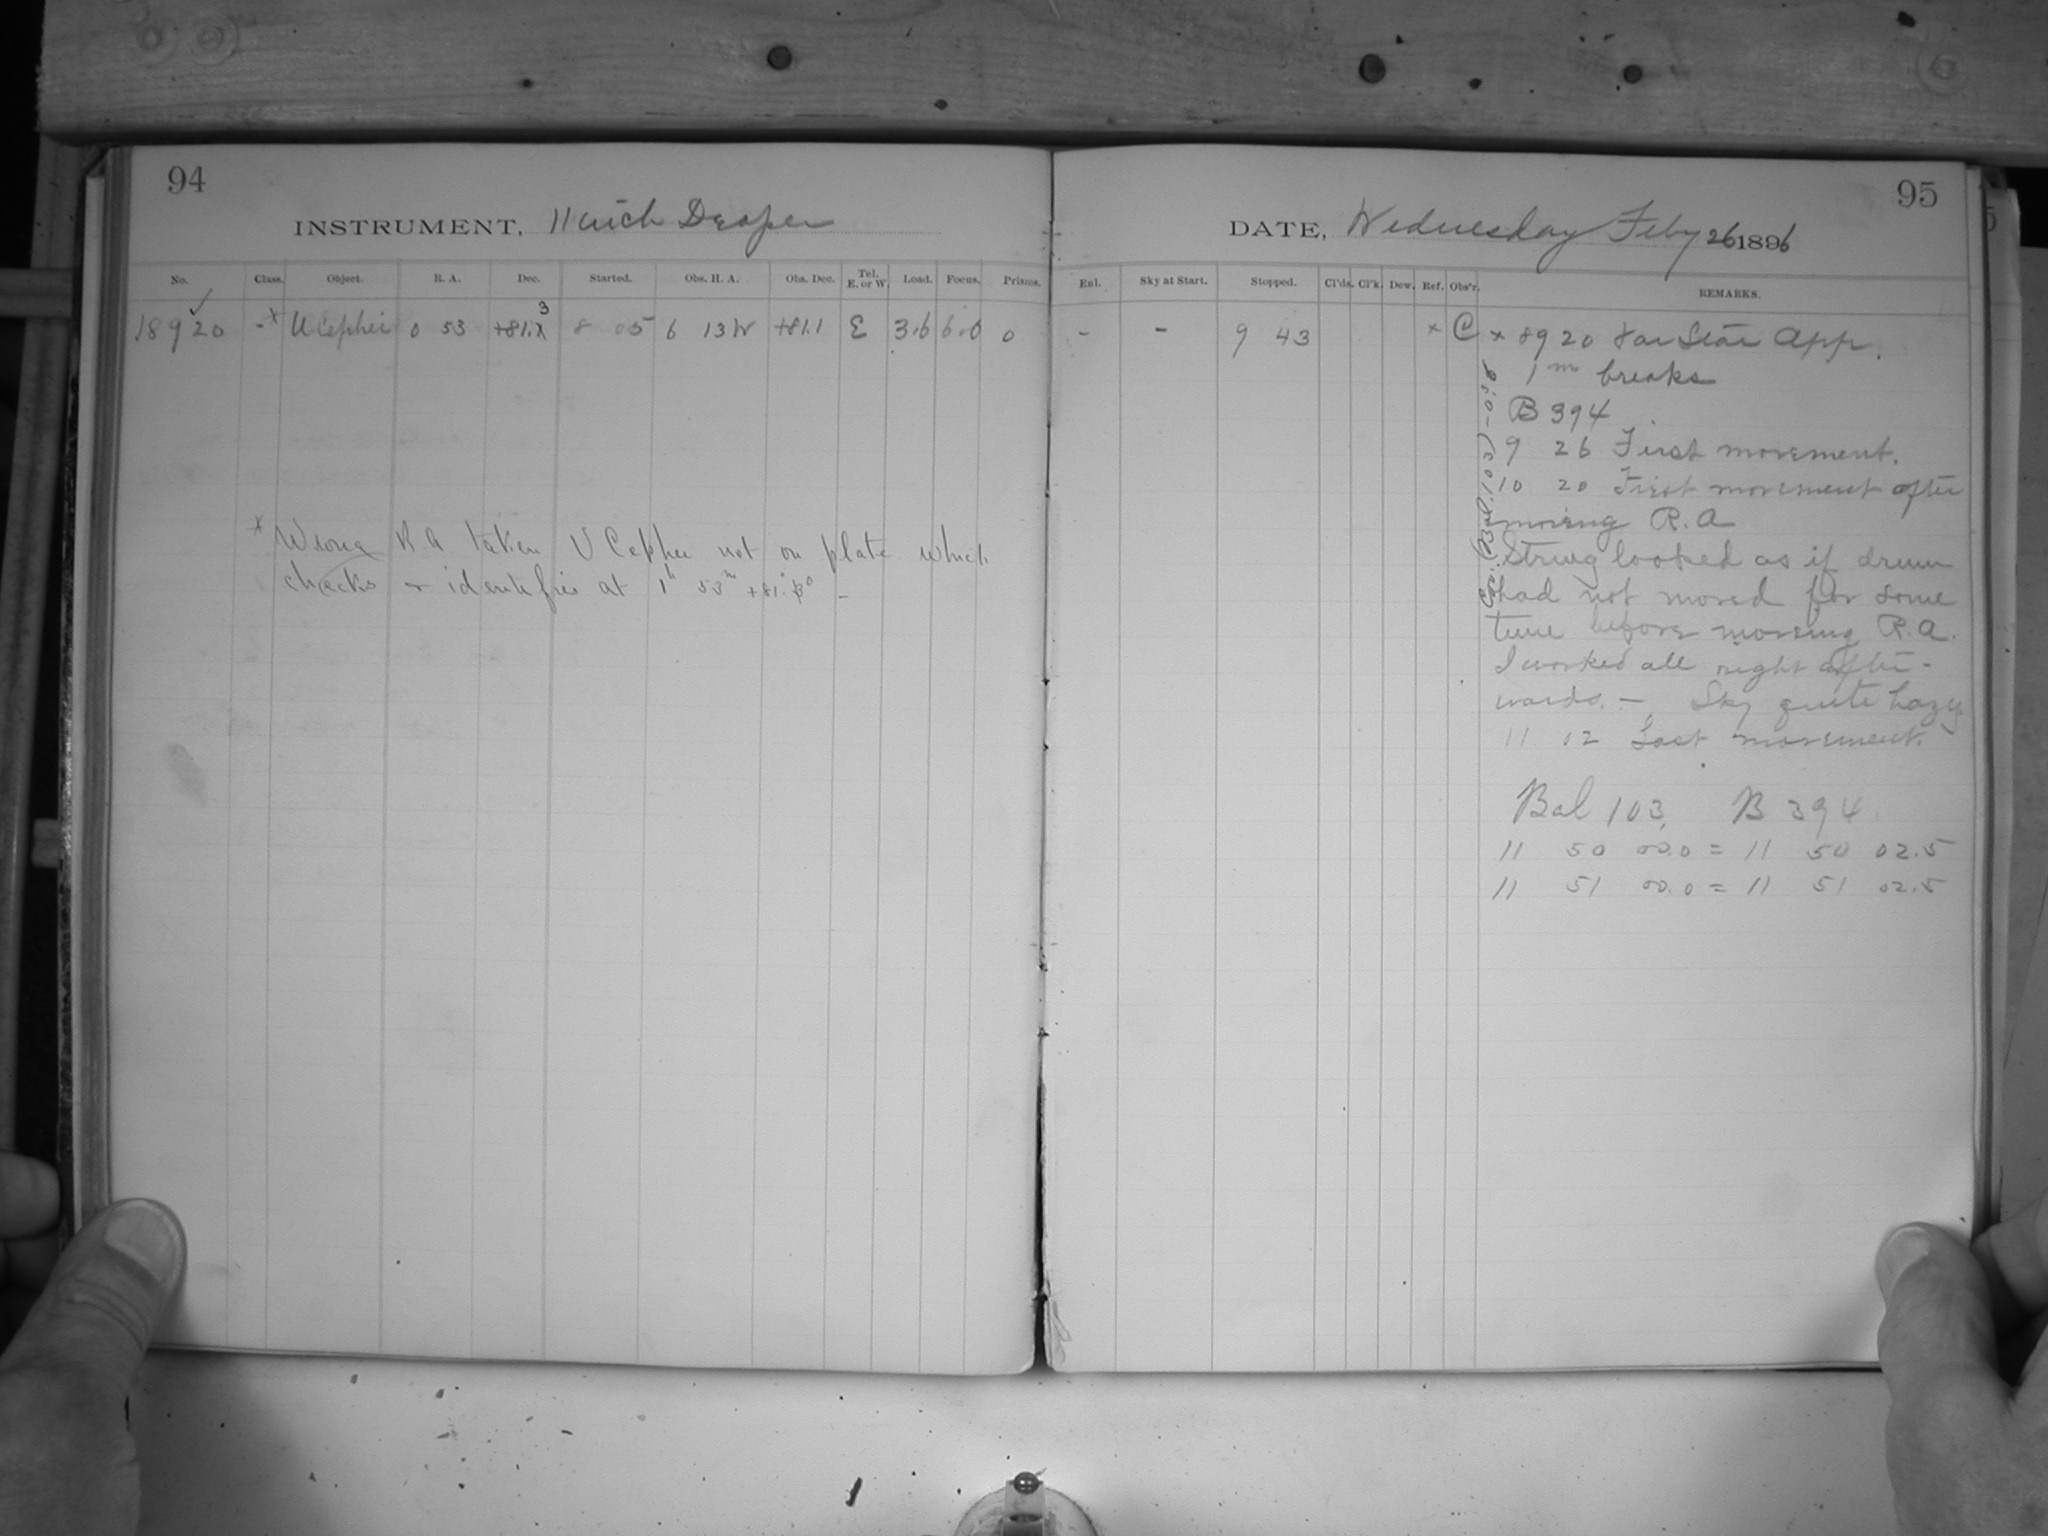 94
INSTRUMENT, 11 inch Draper
No. Class. Object. R. A. Dec. Started. Obs. H. A. Obs. Dec. Tel. E. or W. Load. Focus. Prisms.
18920 -x U Cephei 0 53 +81. 3 8 05 6 13W +81.1 E 3.6 6.0 0
x Wrong R A taken U Cephei not on plate which
checks & identifies at 1h 53m +81.
95
DATE, Wednesday Feby 26 1896
Enl. Sky at Start. Stopped. Cl'ds. Cl'k. Dew. Ref. Obs'r. REMARKS.
- - 9 43 x C x 8920 Star App.
1m breaks
B 394
9 26 First movement.
10 20 First movement after
moving R.A
String looked as if drum
had not moved for some
time before moving R.A.
I worked all right after-
wards. - Sky quite hazy
11 02 Last movement.
(Bal. 103) - 0.5
Bal 103, B 394
11 50 00.0 = 11 50 02.5
11 51 00.0 = 11 51 02.5